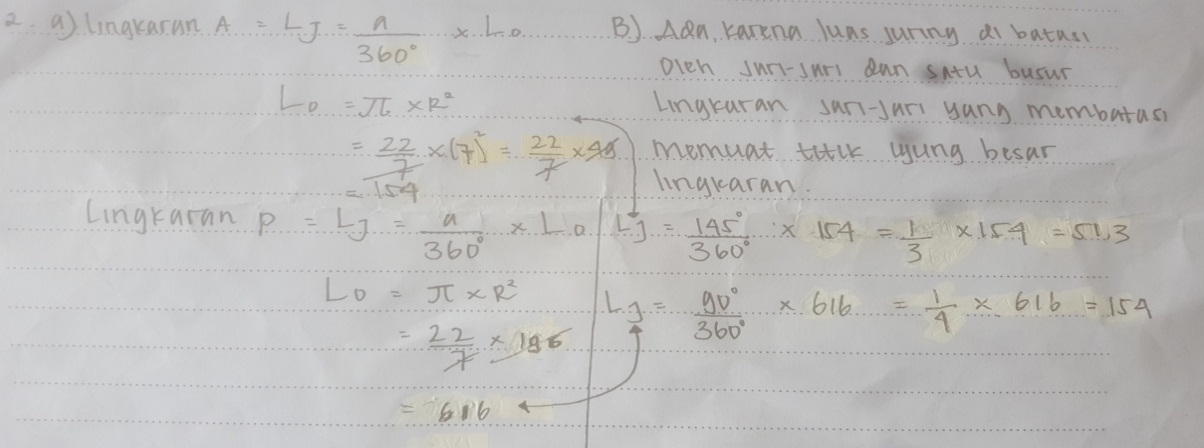 2. a) Lingkaran A = LJ = a/360° × Lo
Lo = π × R²
= 22/7 × (7)² = 22/7 × 49
= 154
Lingkaran P = LJ = a/360° × Lo
Lo = π × R²
= 22/7 × 196
= 616
B) Ada, karena luas juring di batasi
Oleh Jari-Jari dan satu busur
Lingkaran Jari-Jari yang membatasi
memuat titik ujung besar
lingkaran.
LJ = 145°/360° × 154 = 1/3 × 154 = 51,3
LJ = 90°/360° × 616 = 1/4 × 616 = 154